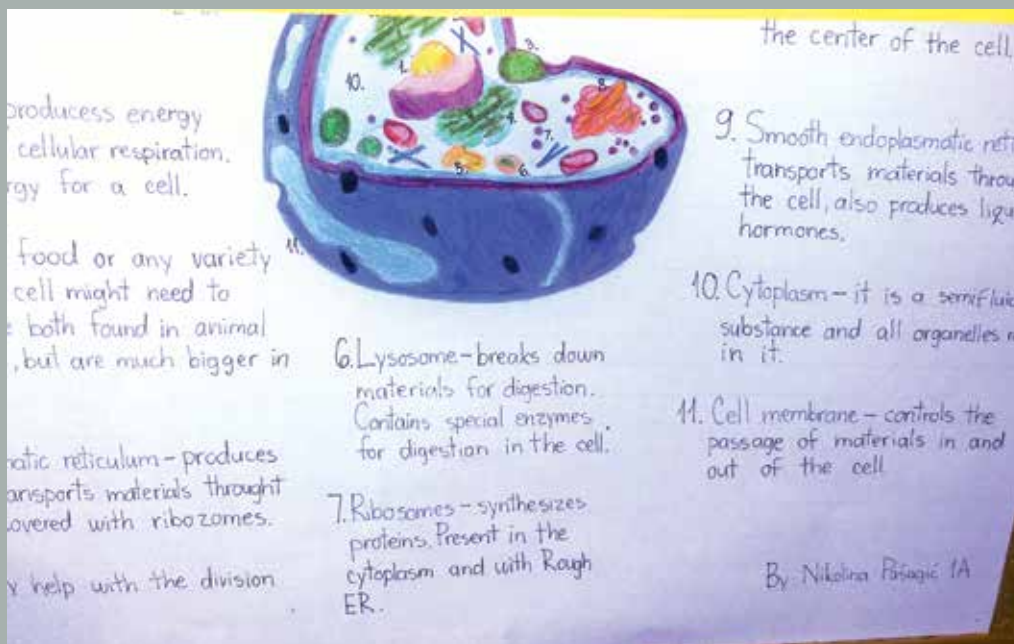 producess energy
cellular respiration.
rgy for a cell.
food or any variety
cell might need to
both found in animal
, but are much bigger in
matic reticulum - produces
ansports materials throught
overed with ribozomes.
help with the division
1.
3.
10.
8.
4.
7.
5.
6.
11.
6. Lysosome - breaks down
materials for digestion.
Contains special enzymes
for digestion in the cell.
7. Ribosomes - synthesizes
proteins. Present in the
cytoplasm and with Rough
ER.
the center of the cell.
9. Smooth endoplasmatic reti
transports materials throu
the cell, also produces
hormones.
10. Cytoplasm - it is a semifluid
substance and all organelles
in it.
11. Cell membrane - controls the
passage of materials in and
out of the cell
By Nikolina Pašagić 1A